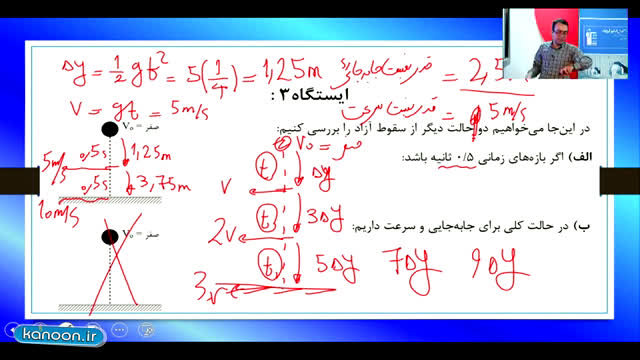 Δy = 1/2 gt² = 5(1/4) = 1,25m قدر نسبت جابه‌جایی = 2,5
V = gt = 5m/s قدر نسبت سرعت = 5m/s
ایستگاه ۳ :
در این‌جا می‌خواهیم دو حالت دیگر از سقوط آزاد را بررسی کنیم:
V₀ = صفر
V₀ = صفر
الف) اگر بازه‌های زمانی ۰/۵ ثانیه باشد:
0,5s 1,25m
5m/s
0,5s 3,75m
10m/s
t Δy
V
t 3Δy
2V
ب) در حالت کلی برای جابه‌جایی و سرعت داریم:
V₀ = صفر
t 5Δy 7Δy 9Δy
3V
kanoon.ir